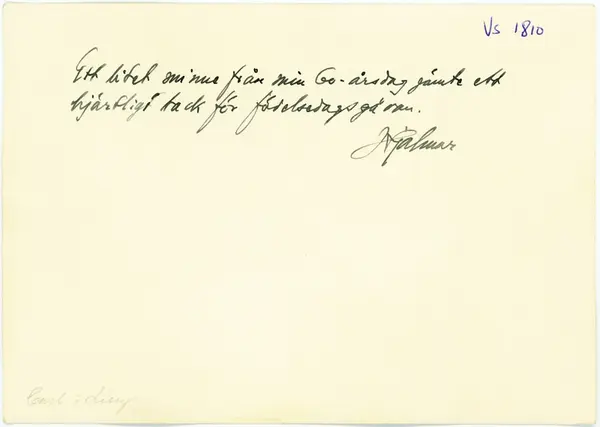 Vs 1810
Ett litet minne från min 60-årsdag jämte ett
hjärtligt tack för födelsedagsgåvan.
Hjalmar
Carl :